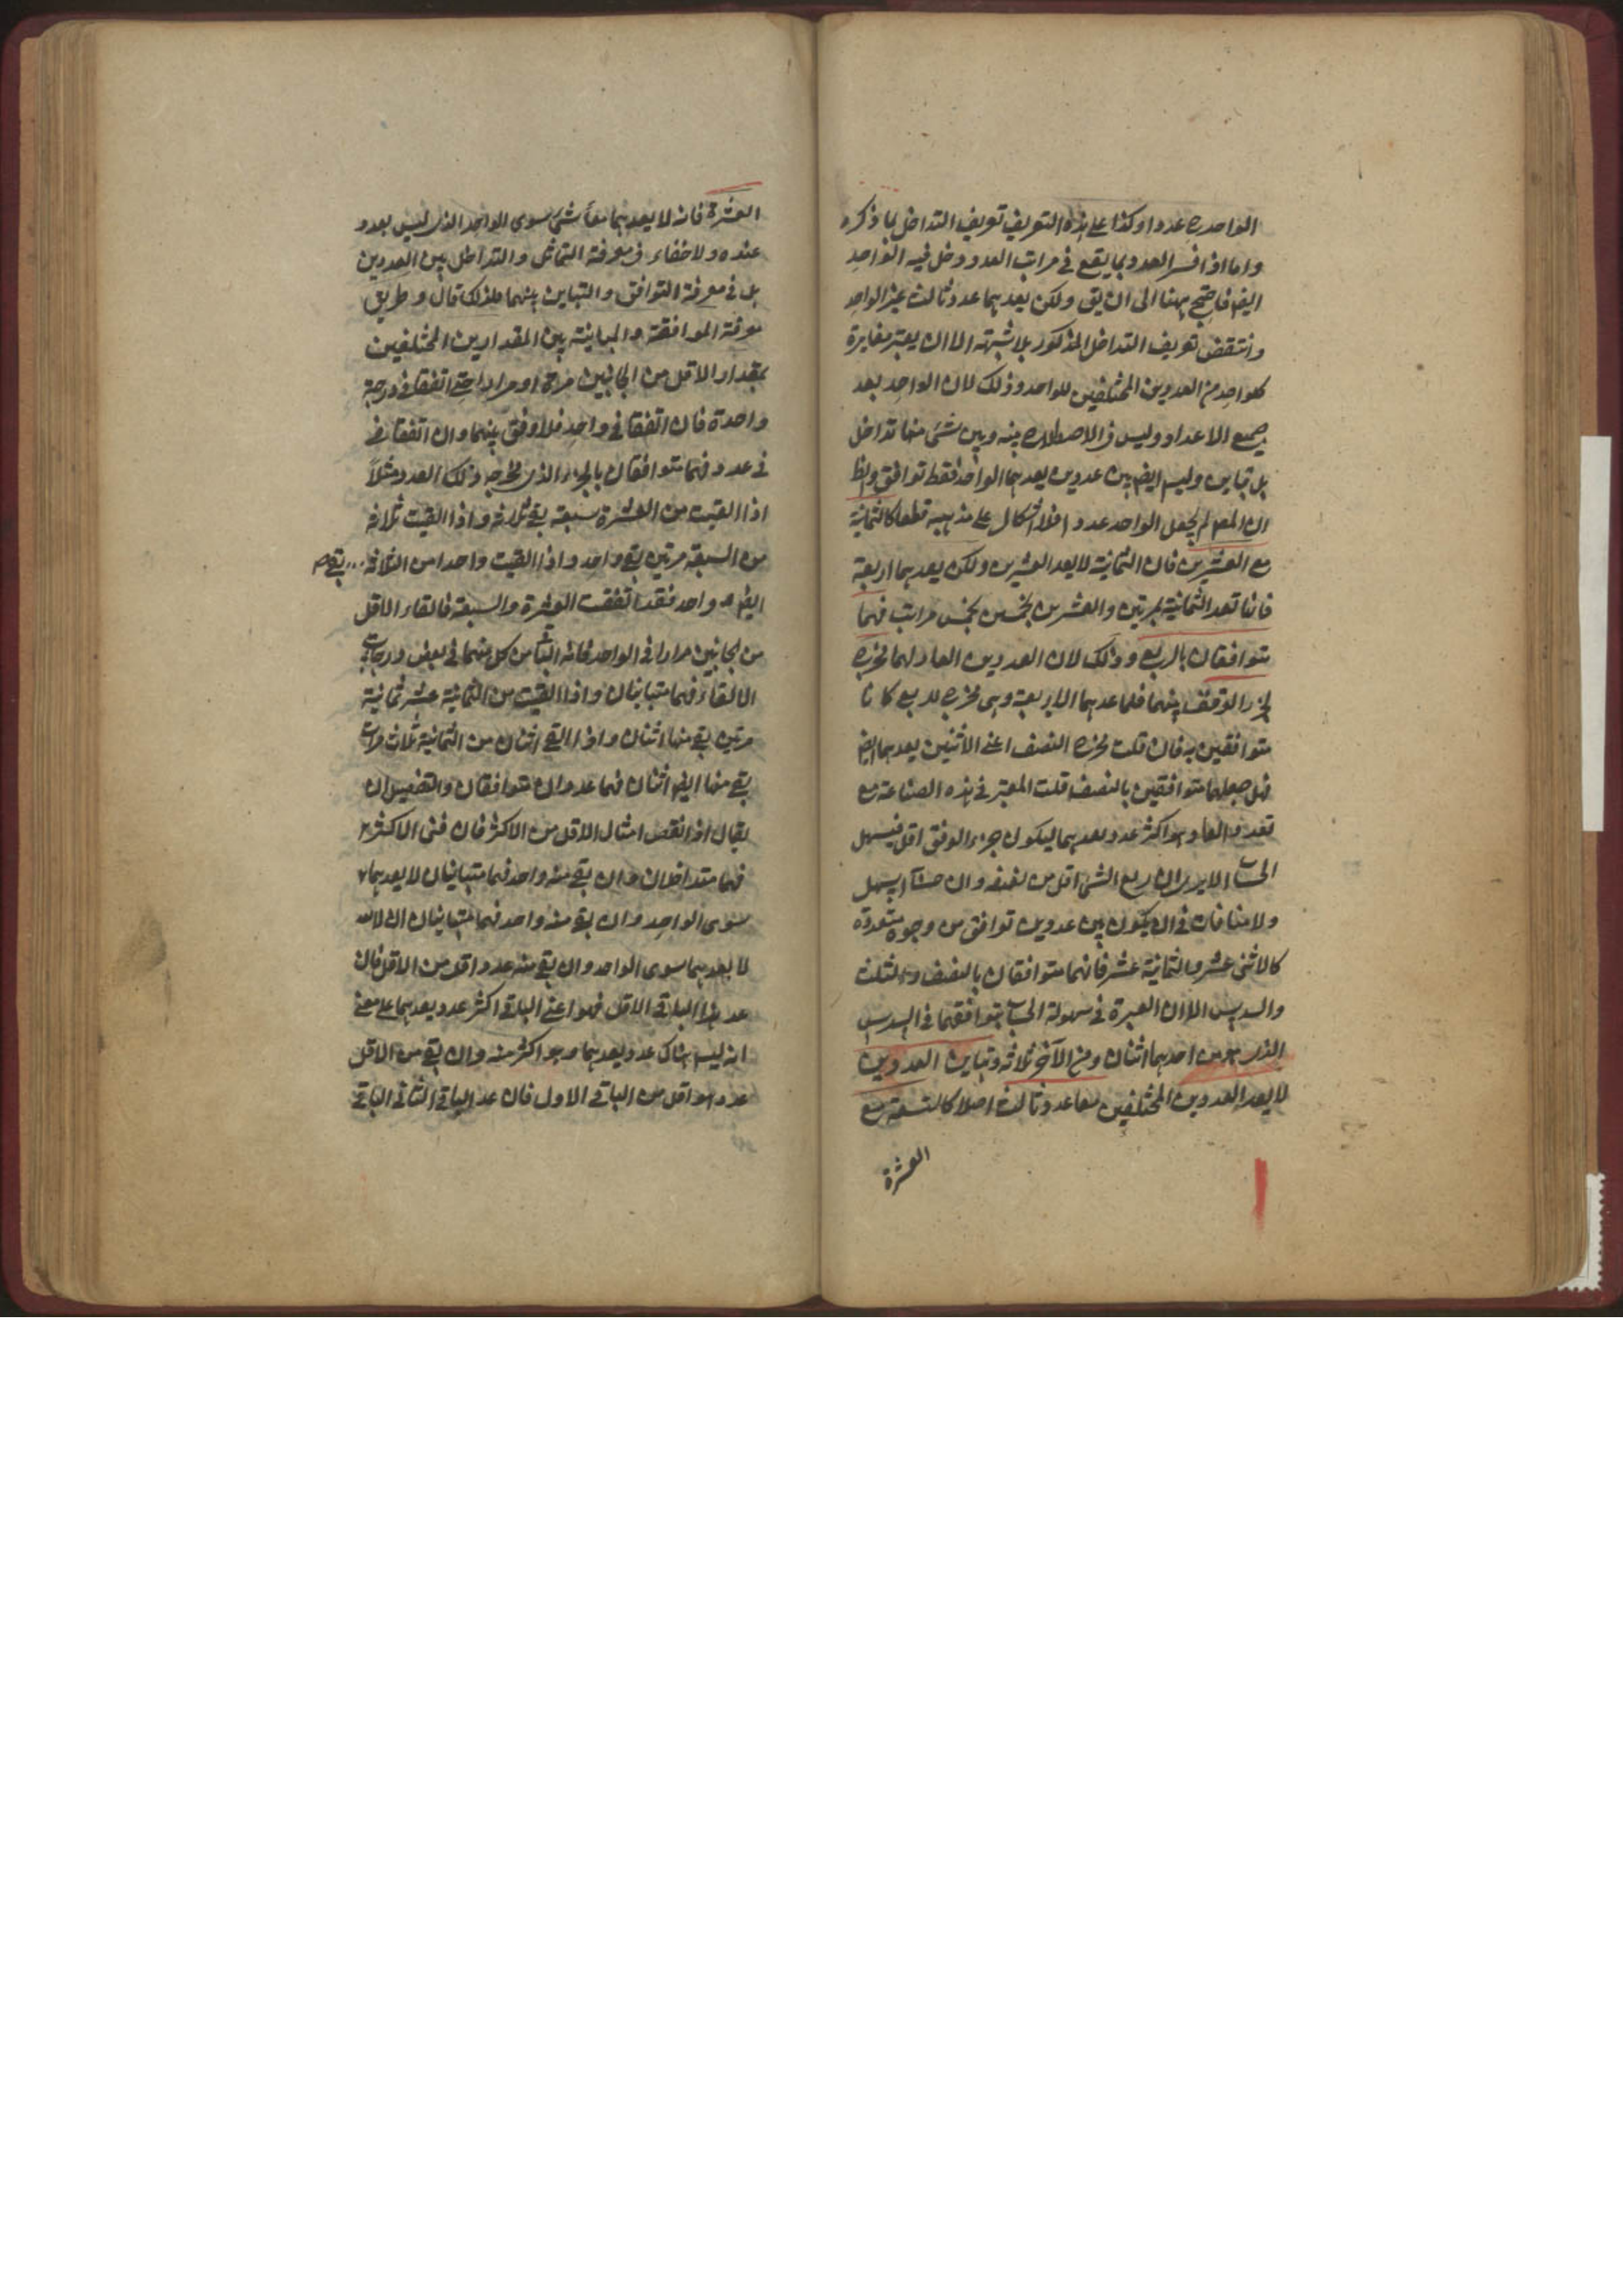 الواحد ح عددا وكذا على هذه التعريف تعريف التداخل بما ذكره
واما اذا فسر العدد بما يقع في مراتب العدد دخل فيه الواحد
ايضا فاحتيج ههنا الى ان يق ولكن يعدهما عدد ثالث غير الواحد
وانتقض تعريف التداخل المذكور بلا شبهة الا ان يعتبر مغايرة
كلواحد من العددين المختلفين للواحد وذلك لان الواحد يعد
جميع الاعداد وليس في الاصطلاح بينه وبين شئ منها تداخل
بل تباين وليس ايضا بين عددين يعدهما الواحد فقط توافق والظ
ان المص لم يجعل الواحد عددا فلا اشكال على مذهبه قطعا كالثمانية
مع العشرين فان الثمانية لا يعد العشرين ولكن يعدهما اربعة
فانها تعد الثمانية بمرتين والعشرين بخمس مرات فهما
متوافقان بالربع وذلك لان العددين العاد لهما مخرج
لجزء الوفق بينهما فلما عدهما الاربعة وهي مخرج للربع كانا
متوافقين به فان قلت مخرج النصف اعني الاثنين يعدهما ايضا
فهل جعلهما متوافقين بالنصف قلت المعتبر في هذه الصناعة مع
تعدد العاد هو اكثر عدد يعدهما ليكون جزء الوفق اقل فيسهل
الحساب الا يرى ان ربع الشئ اقل من نصفه وان حسابه اسهل
ولا منافاة في ان يكون بين عددين توافق من وجوه متعددة
كالاثنى عشر والثمانية عشر فانهما متوافقان بالنصف والثلث
والسدس الا ان العبرة في سهولة الحساب بتوافقهما في السدس
الذي هو من احدهما اثنان ومن الآخر ثلاثة وتباين العددين
لا يعد العددين المختلفين معا عدد ثالث اصلا كالتسعة مع
العشرة
العشرة فانه لا يعدهما معا شئ سوى الواحد الذي ليس بعدد
عنده ولا خفاء في معرفة التماثل والتداخل بين العددين
بل في معرفة التوافق والتباين بينهما فلذلك قال وطريق
معرفة الموافقة والمباينة بين المقدارين المختلفين
بمقدار الاقل من الجانبين مرة او مرارا حتى اتفقا في درجة
واحدة فان اتفقا في واحد فلا وفق بينهما وان اتفقا في
في عدد فهما متوافقان بالجزء الذي مخرجه ذلك العدد مثلا
اذا القيت من العشرة سبعة بقى ثلاثة واذا القيت ثلاثة
من السبعة مرتين بقى واحد واذا القيت واحدا من الثلاثة بقى
ايضا واحد فقد اتفقت العشرة والسبعة فالقاء الاقل
من الجانبين مرارا في الواحد كل منهما في بعض درجات
الالقاء فهما متباينان واذا القيت من الثمانية عشر ثمانية
مرتين بقى منها اثنان واذا القى اثنان من الثمانية ثلاث مرات
بقى منها ايضا اثنان فهما عددان متوافقان والتفصيل ان
يقال اذا نقص امثال الاقل من الاكثر فان فنى الاكثر
فهما متداخلان وان بقى منه واحد فهما متباينان لا يعدهما
سوى الواحد وان بقى منه واحد فهما متباينان
لا يعدهما سوى الواحد وان بقى منه عدد اقل من الاقل فان
عد هذا الباقى الاقل فهو اعنى الباقى اكثر عدد يعدهما على معنى
انه ليس هناك عدد يعدهما وهو اكثر منه وان بقى من الاقل
عدد هو اقل من الباقى الاول فان عد الباقى الثانى الباقى